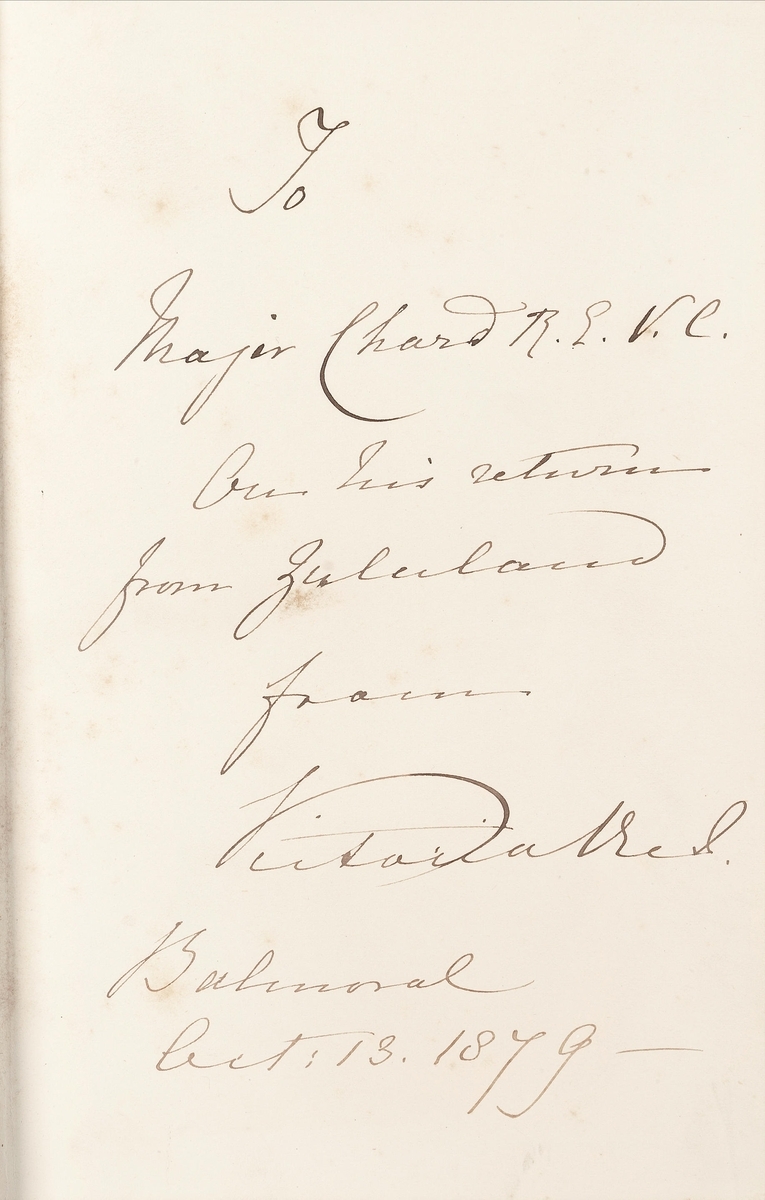 To
Major Chard R.E. V.C.
On his return
from Zululand
from
Victoria R e I.
Balmoral
Oct: 13. 1879 —